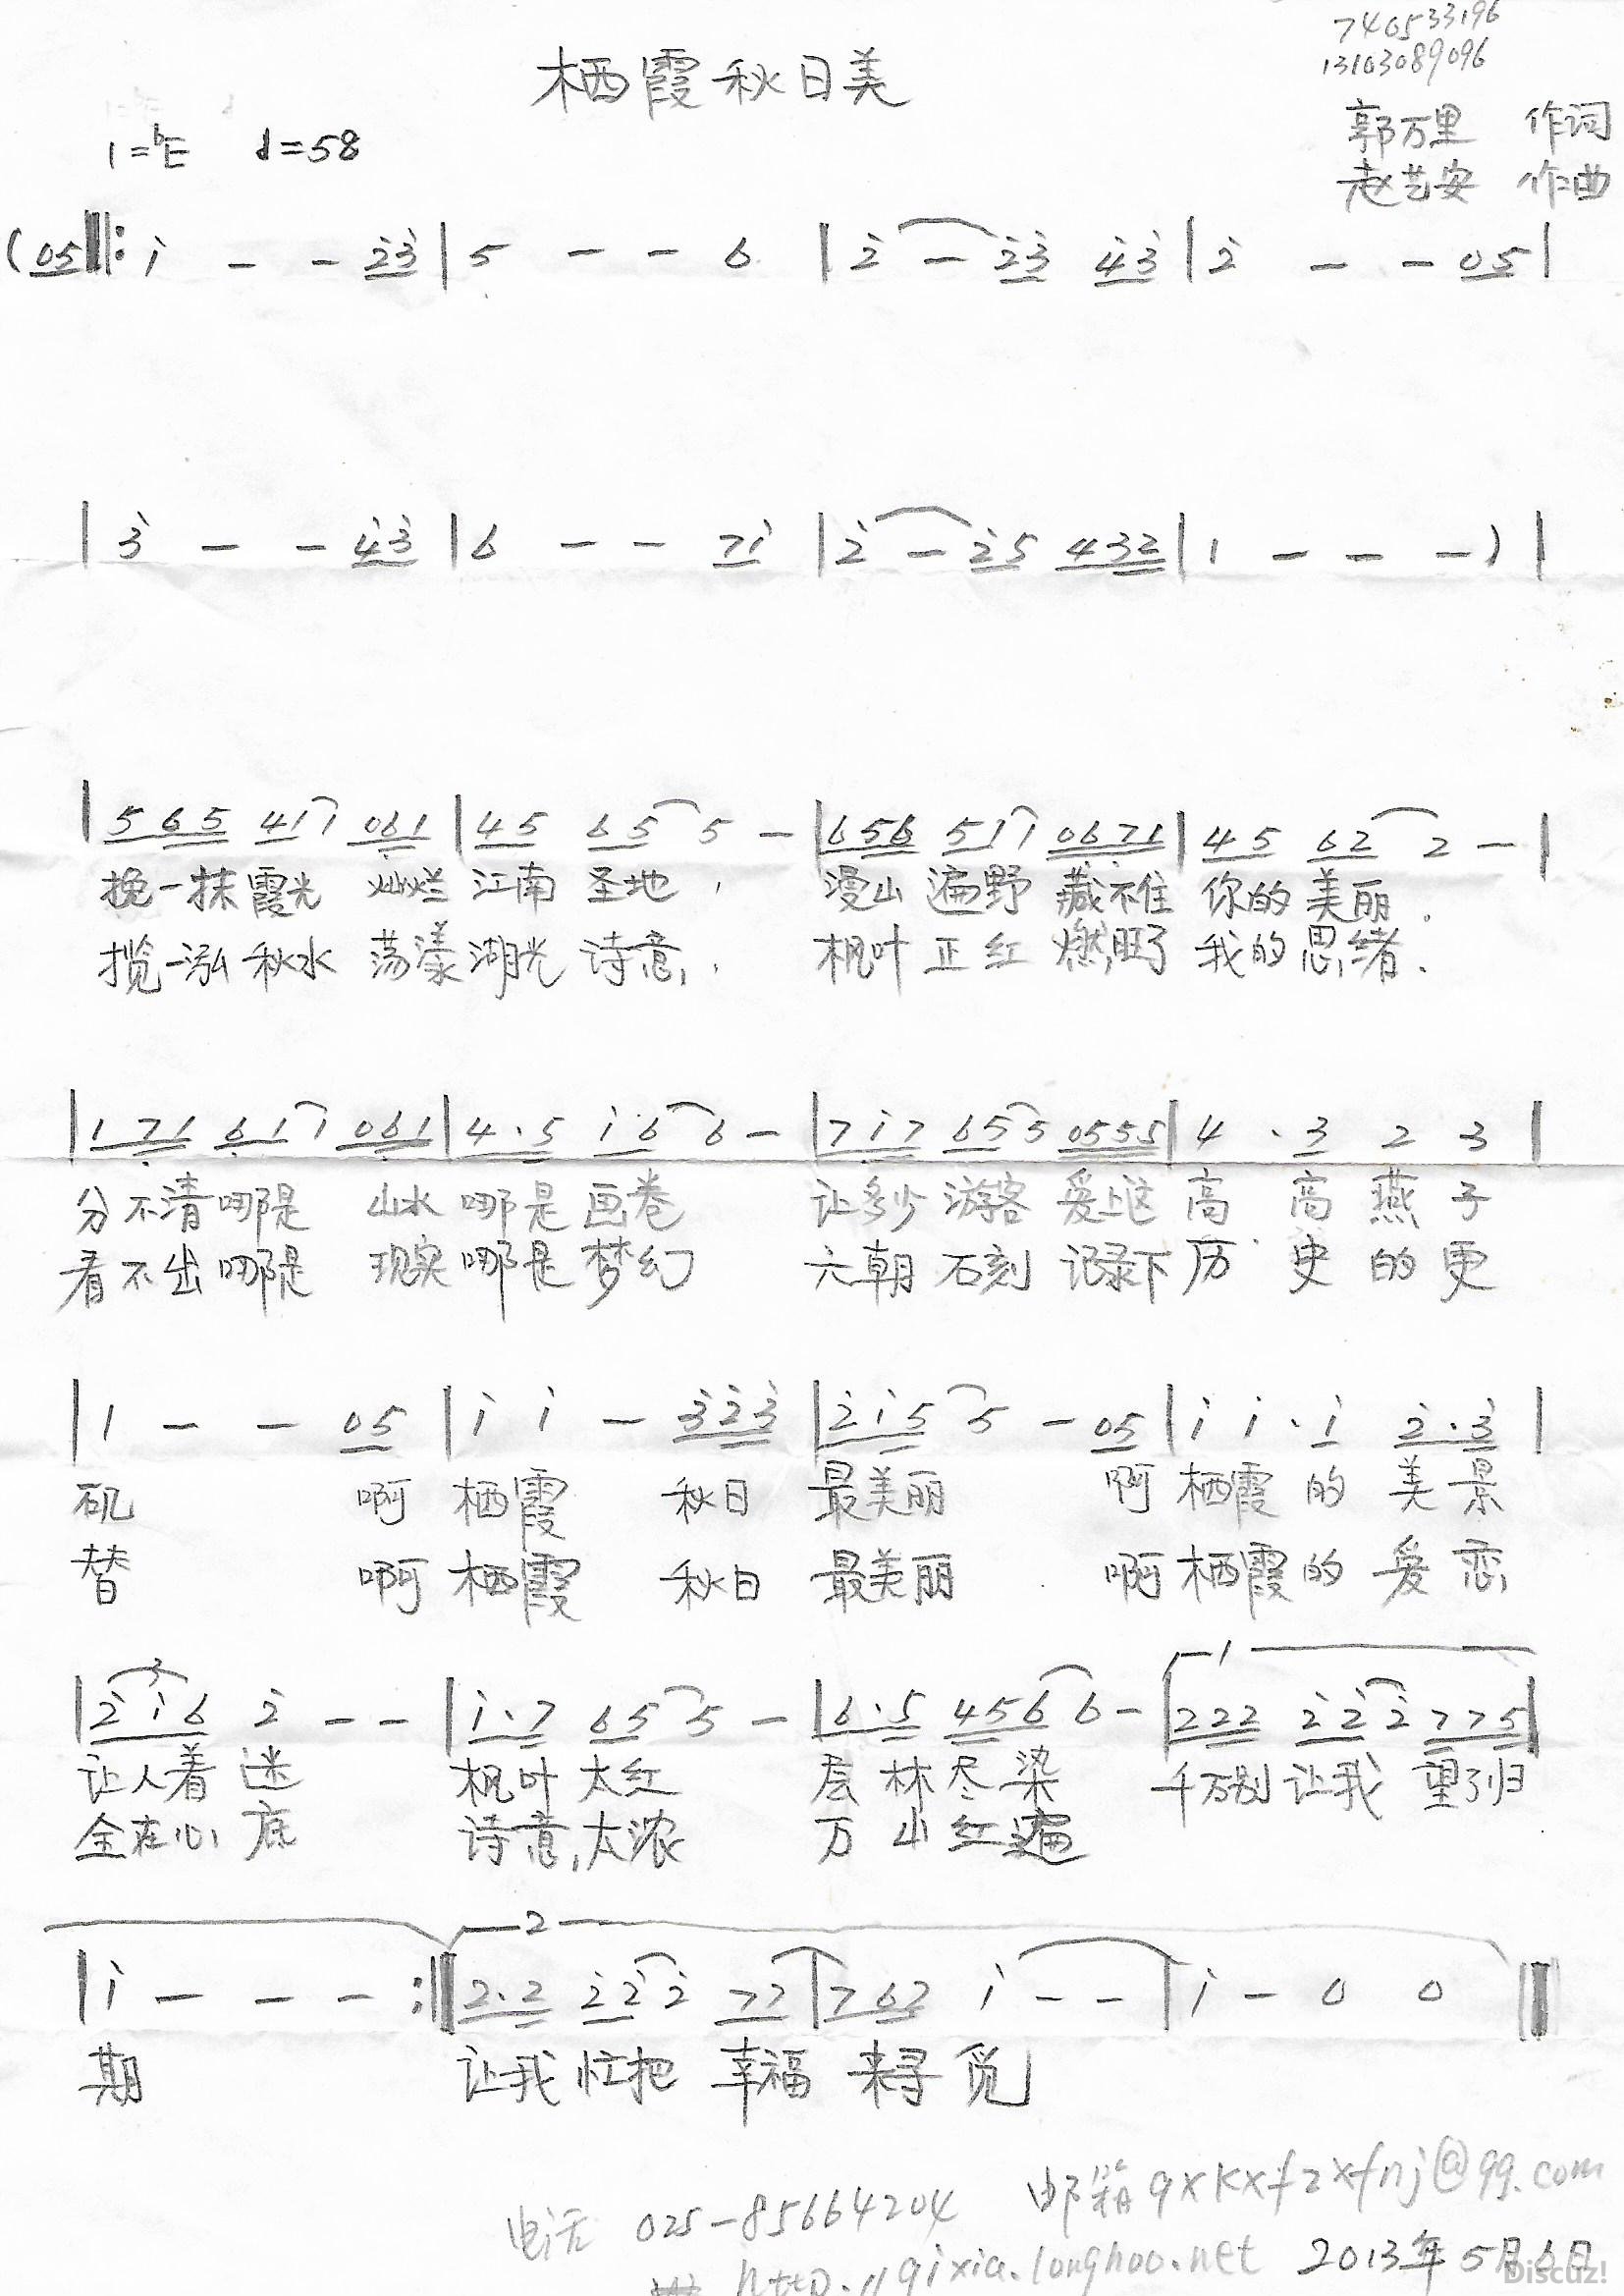 740533196
13103089096
栖霞秋日美
郭万里 作词
1=bE ♩=58
赵艺安 作曲
(05‖: i - - 2̇3̇ | 5 - - 6 | 2̇ - 2̇3̇ 4̇3̇ | 2̇ - - 05 |
| 3̇ - - 4̇3̇ | 6 - - 7i | 2̇ - 2̇5 432 | 1 - - -) |
| 565 411 061 | 45 65 5 - | 656 511 0671 | 45 62 2 - |
挽一抹霞光 灿烂 江南 圣地， 漫山 遍野 藏不住 你的 美丽.
揽一泓秋水 荡漾 湖光 诗意, 枫叶 正红 燃旺了 我的 思绪.
| 1 71 611 061 | 4·5 i6 6 - | 7i7 655 0555 | 4 · 3 2 3 |
分不清哪是 山水 哪是画卷 让多少 游客 爱上这 高 高 燕 子
看不出哪是 现实 哪是梦幻 六朝 石刻 记录下 历 史 的 更
| 1 - - 05 | i i - 3̇2̇3̇ | 2̇i5 5 - 05 | i i · i 2̇·3̇ |
矶 啊 栖霞 秋日 最美丽 啊 栖霞 的 美 景
替 啊 栖霞 秋日 最美丽 啊 栖霞 的 爱 恋
1
3
| 2̇i6 2̇ - - | i·7 65 5 - | 6·5 456 6 - | 222 2̇2̇2̇ 775 |
让人着 迷 枫叶 太红 层 林 尽 染 千万别 让我 望了归
全在心 底 诗意 太浓 万 山 红 遍
2
| i - - - :‖ 2·2 2̇2̇2̇ 77 | 762 i - - | i - 0 0 ‖
期 让我 忙把 幸福 来寻 觅
邮箱 qxkxfzxfnj@qq.com
电话 025-85664204
http://qixia.longhoo.net 2013年5月6日
Discuz!